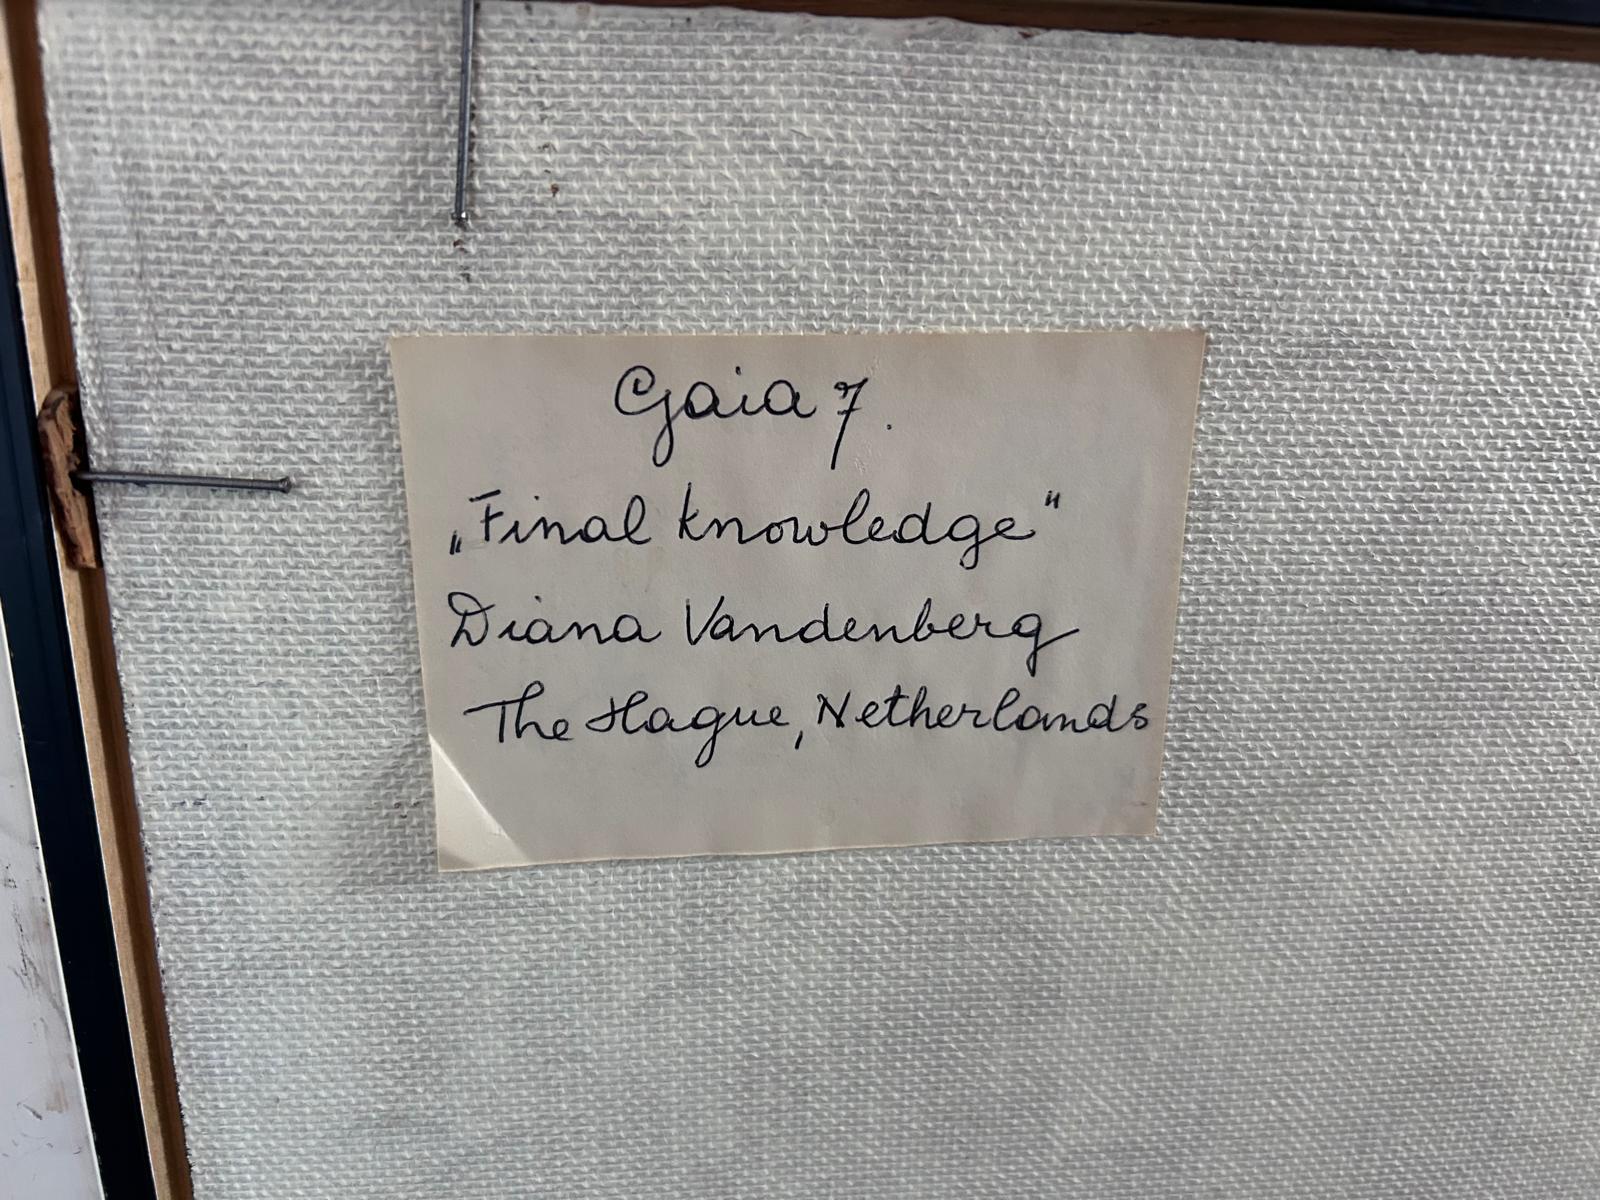 Gaia 7.
„Final knowledge"
Diana Vandenberg
The Hague, Netherlands